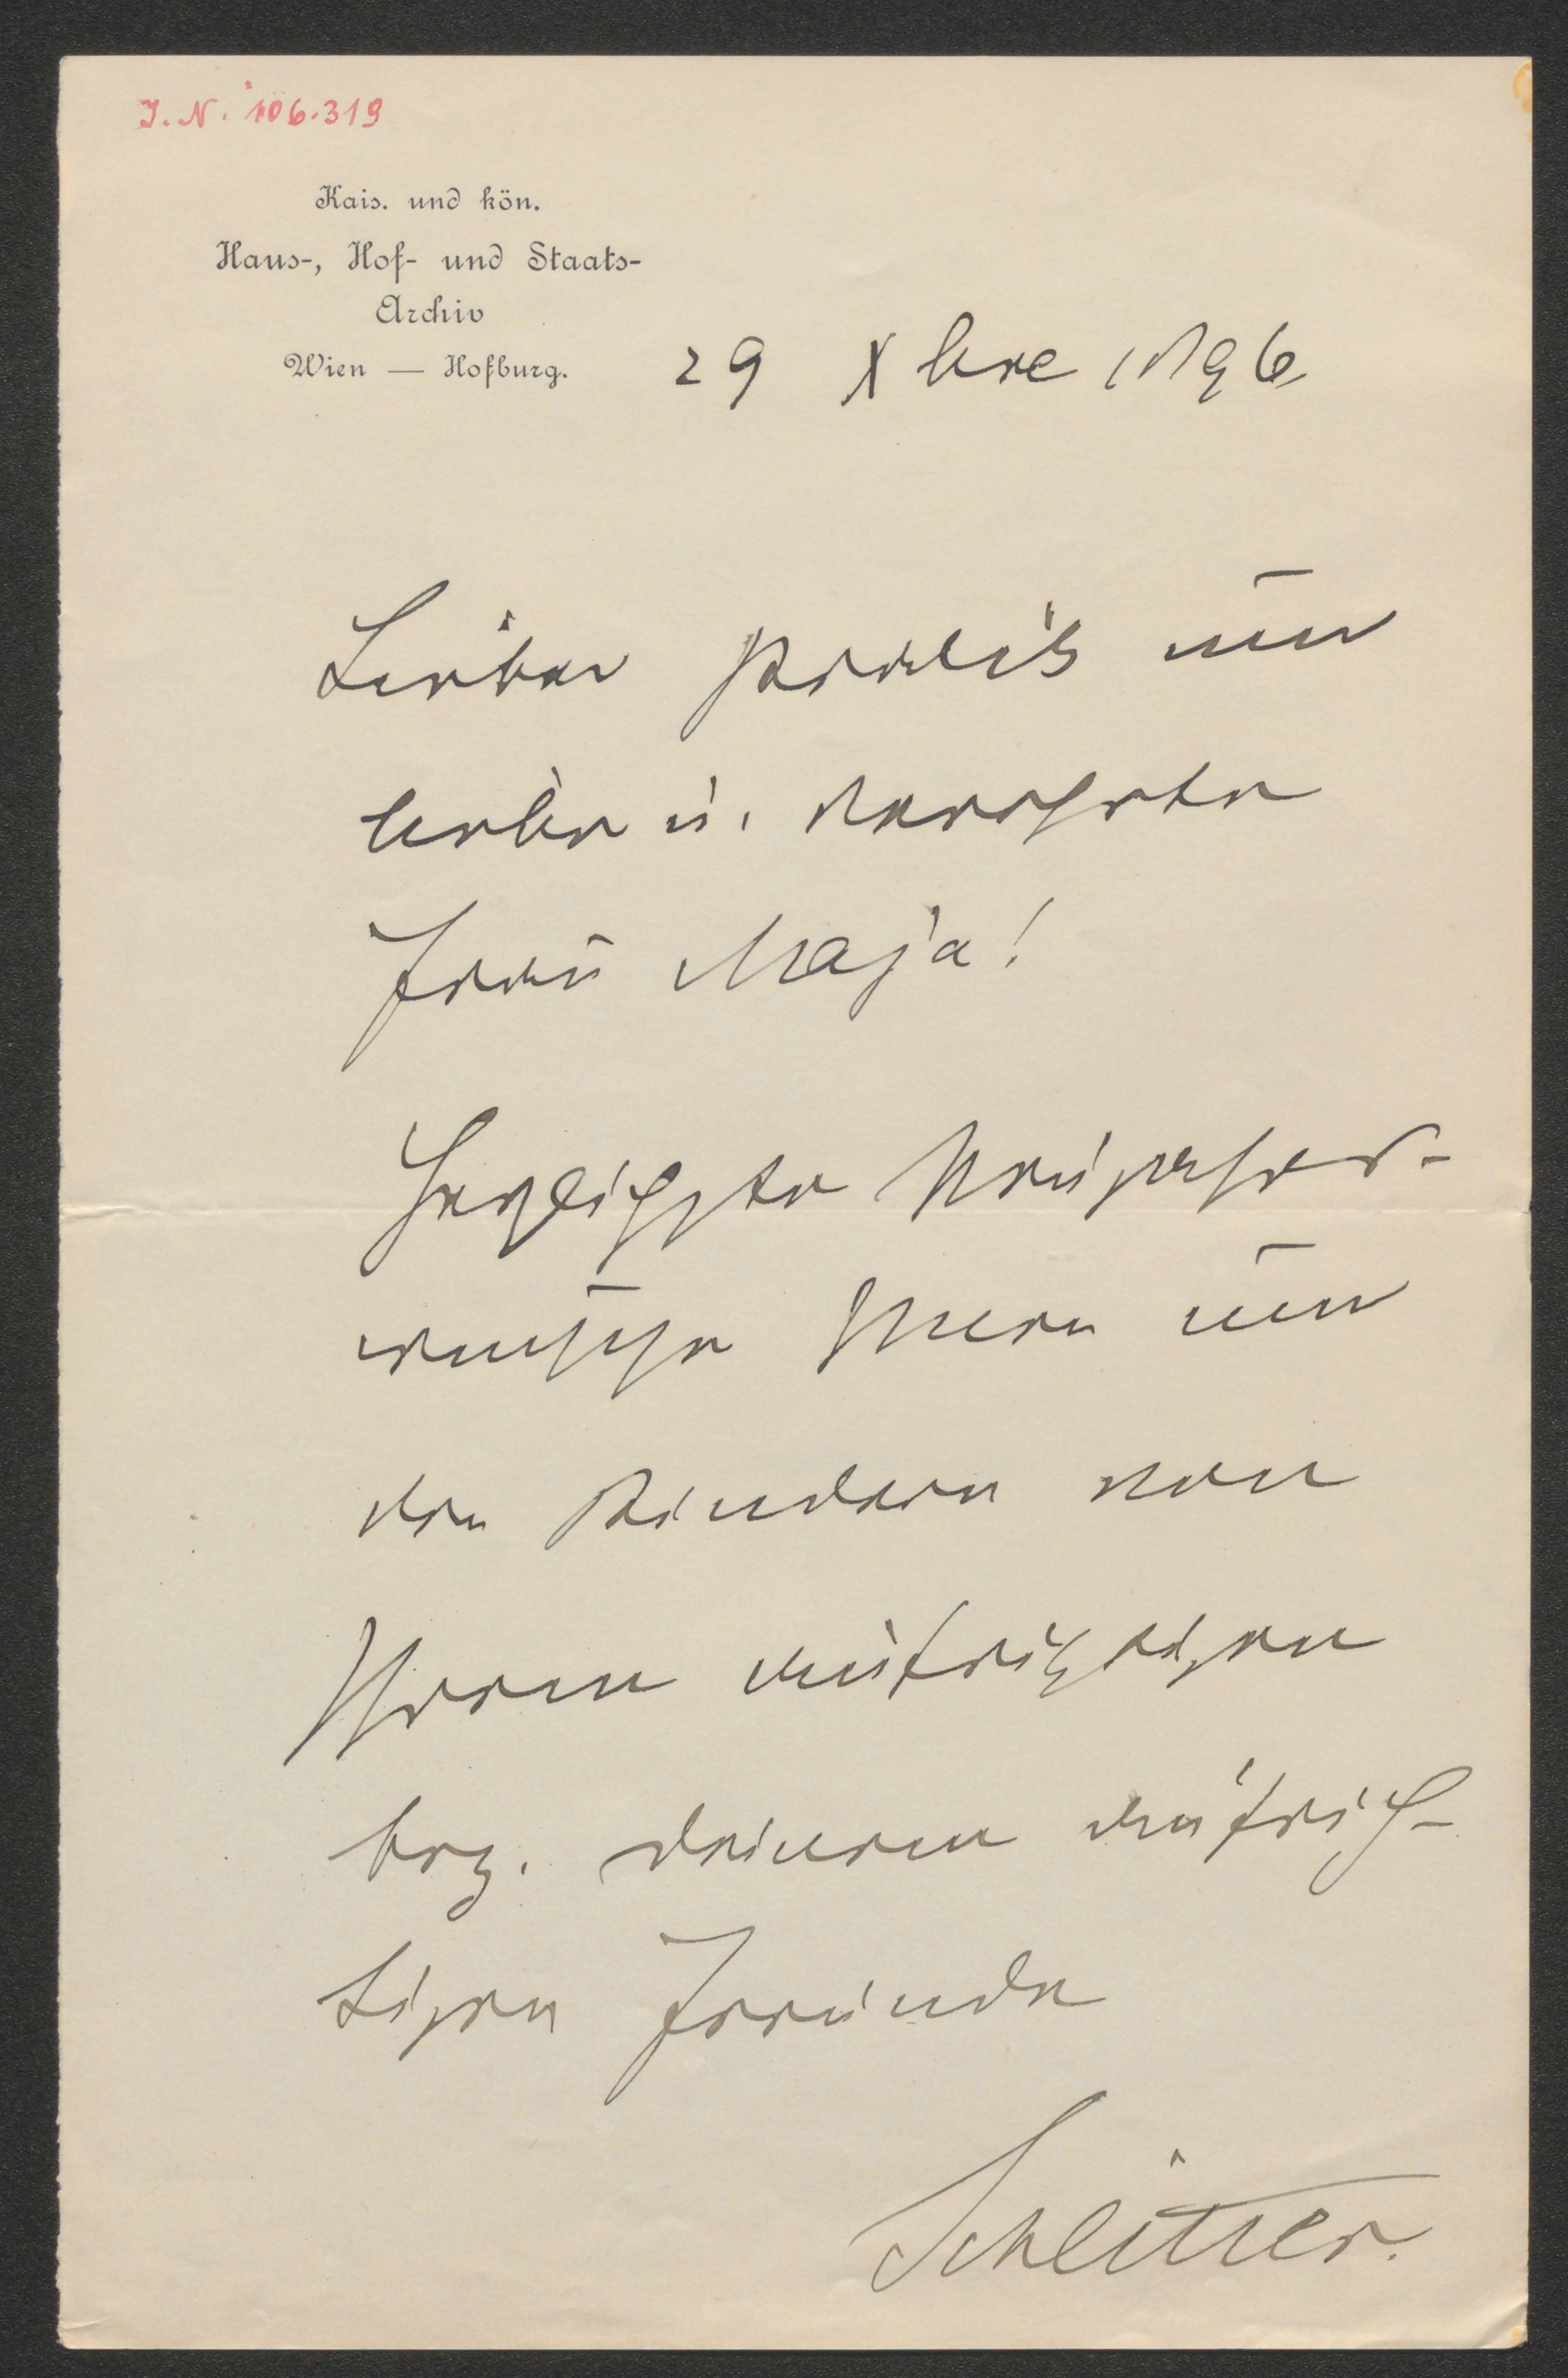 J. N. 106.319
Kais. und kön.
Haus-, Hof- und Staats-
Archiv
Wien — Hofburg.
29 Xbre 1896
Lieber Poldi und
liebe u. verehrte
Frau Maja!
Herzlichste Neujahrs-
wünsche Ihnen und
den Kindern von
Ihrem aufrichtigen
bez. deinem aufrich-
tigen Freunde
Schlitter.